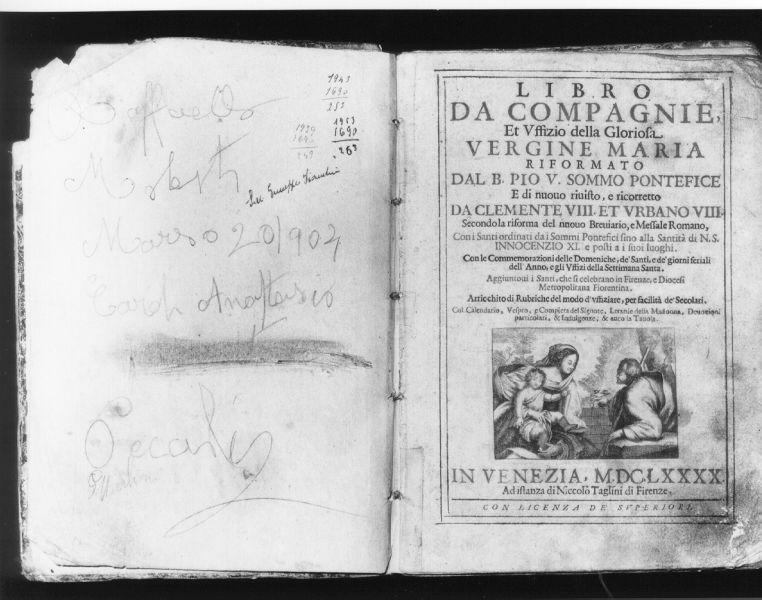 Raffaello
Marzo 20/904
1943
1690
253
1953
1690
263
LIBRO
DA COMPAGNIE,
Et Vffizio della Gloriosa
VERGINE MARIA
RIFORMATO
DAL B. PIO V. SOMMO PONTEFICE
E di nuouo riuisto, e ricorretto
DA CLEMENTE VIII. ET VRBANO VIII.
Secondo la riforma del nuouo Breuiario, e Messale Romano,
Con i Santi ordinati da i Sommi Pontefici sino alla Santità di N. S.
INNOCENZIO XI. e posti a i suoi luoghi.
Con le Commemorazioni delle Domeniche, de' Santi, e de' giorni feriali
dell' Anno, e gli Vffizi della Settimana Santa.
Aggiuntoui i Santi, che si celebrano in Firenze, e Diocesi
Metropolitana Fiorentina.
Arricchito di Rubriche del modo d'vffiziare, per facilità de' Secolari.
Col Calendario, Vespro, e Compieta del Signore, Letanie della Madonna, Deuozioni
particolari, & Indulgenze, & anco la Tauola.
IN VENEZIA, M.DC.LXXXX.
Ad istanza di Niccolò Taglini di Firenze,
CON LICENZA DE' SVPERIORI.